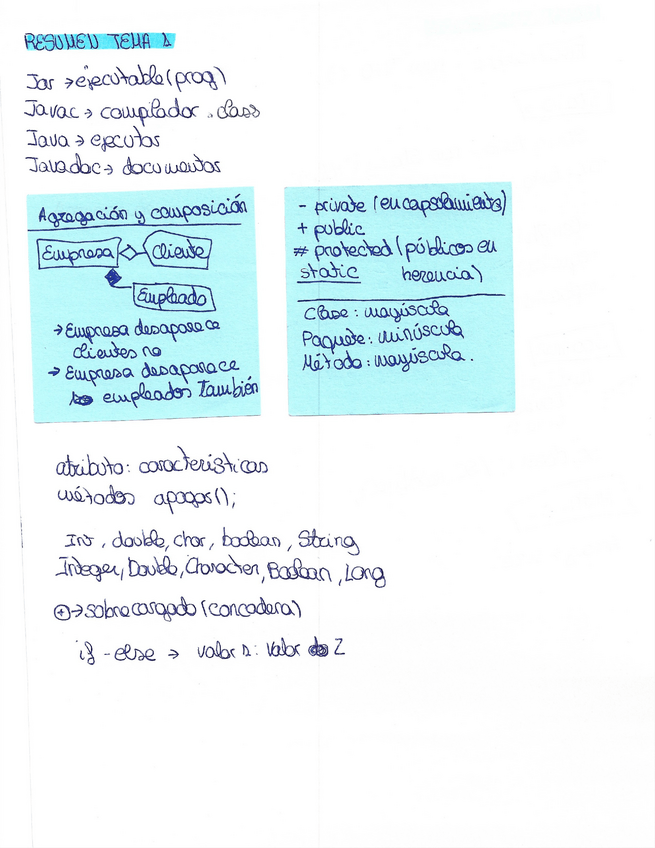 RESUMEN TEMA 1
Jar → ejecutable (prog)
Javac → compilador .class
Java → ejecutas
Javadoc → documentos
Agregación y composición
Empresa Cliente
Empleado
→ Empresa desaparece
clientes no
→ Empresa desaparece
empleados también
- private (encapsulamiento)
+ public
# protected (públicos en
static herencia)
Clase: mayúscula
Paquete: minúscula
Método: mayúscula.
atributo: características
métodos apagar();
Int, double, char, boolean, String
Integer, Double, Character, Boolean, Long
⊕→ sobrecargado (concadera)
if - else → valor 1: valor 2